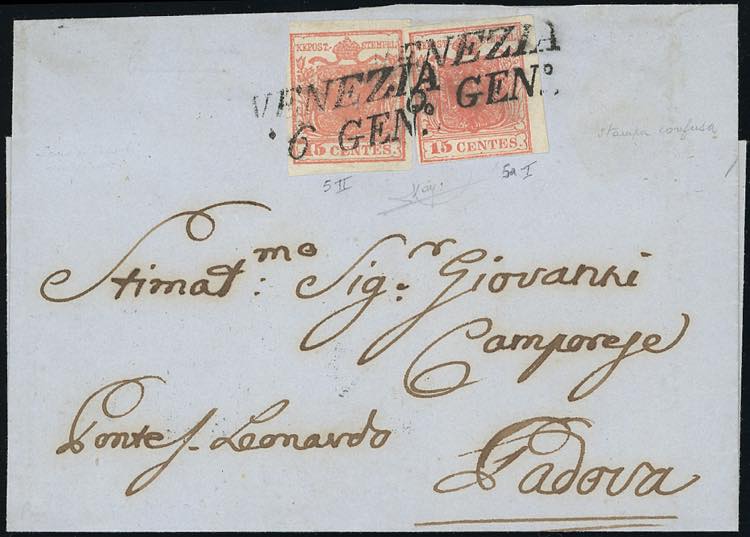 KKPOST-STEMPEL KKPOST-STEMPEL
VENEZIA VENEZIA
6 GEN.º 6 GEN.º
15 CENTES 15 CENTES
5 II 5a I
stampa confusa
Stimat.mo Sig.r Giovanni
Camporese
Ponte S. Leonardo
Padova